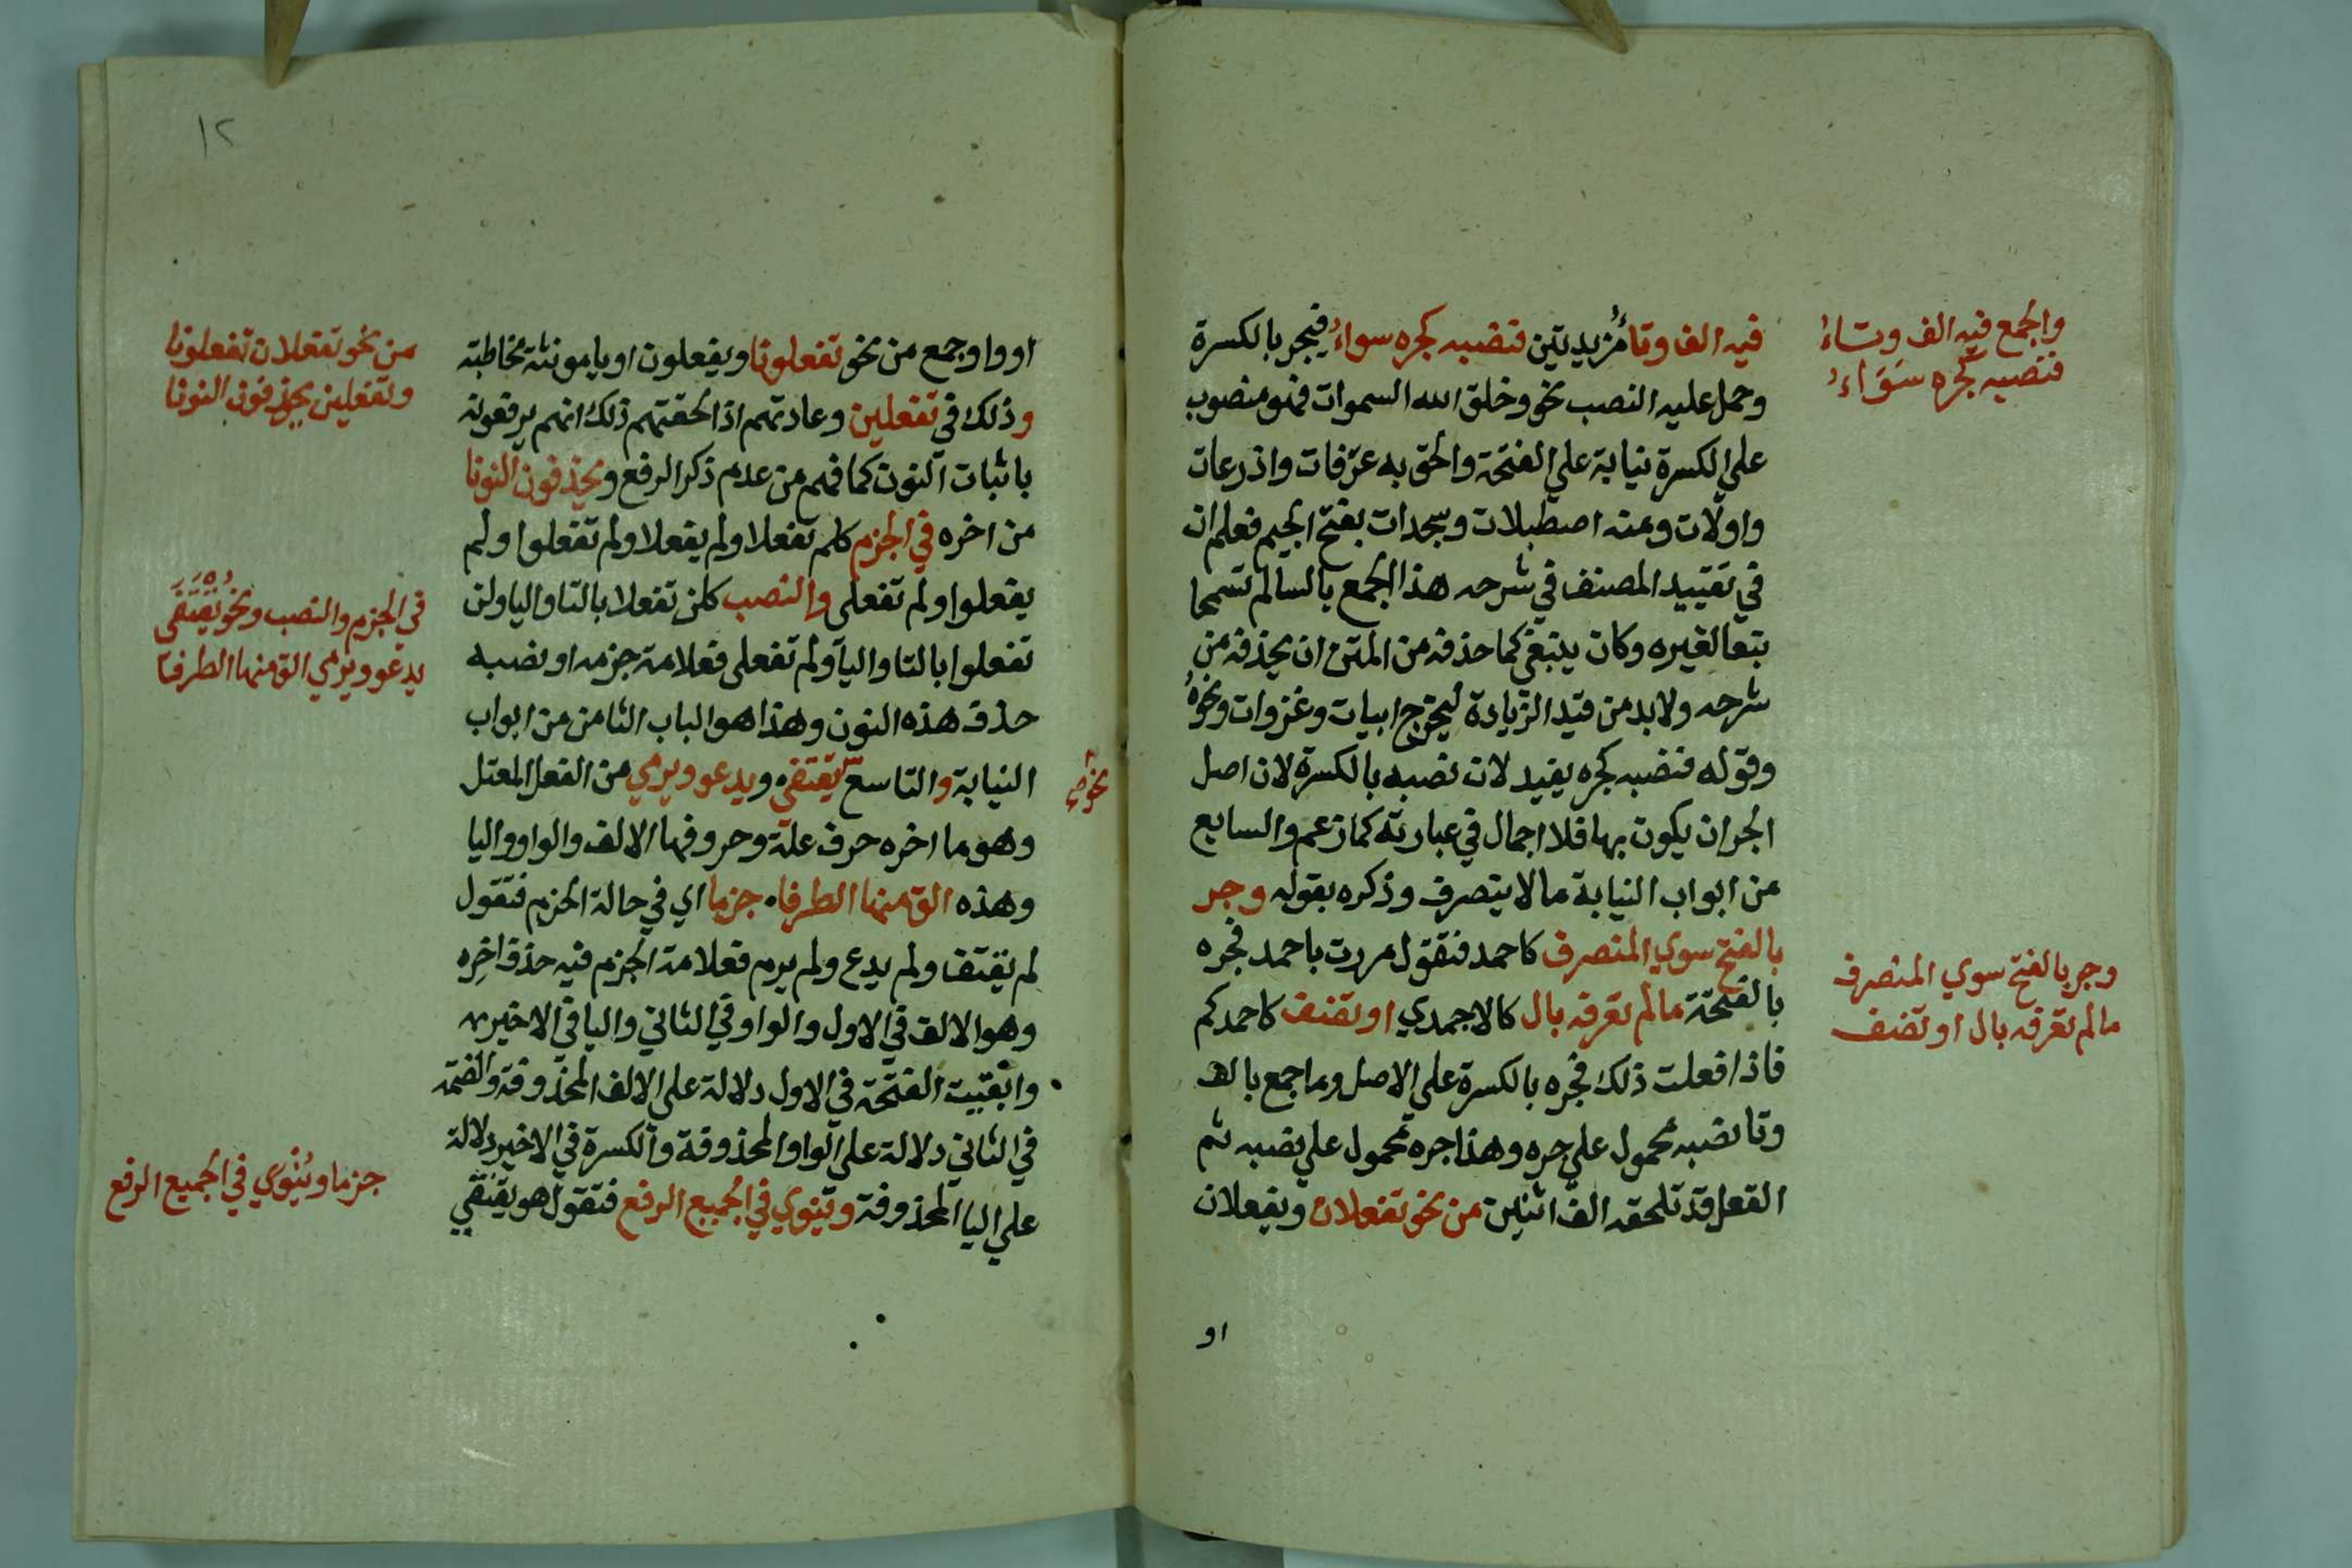 فيه الف وتاءٌ مزيديتين فنصبه كجره سواءُ فيجر بالكسرة
وحمل عليه النصب نحو وخلق الله السموات فهو منصوب
علي الكسرة نيابة علي الفتحة والحق به عرفات واذرعات
واولات ومنه اصطبلات وسجدات بفتح الجيم فعلم ان
في تقييد المصنف في شرحه هذا الجمع بالسالم تسمحا
تبعا لغيره وكان ينبغي كما حذفه من المتن ان يحذفه من
شرحه ولابد من قيد الزيادة ليخرج ابيات وغزوات ونحوهُ
وقوله فنصبه كجره يفيد لان نصبه بالكسرة لان اصل
الجر ان يكون بها فلا اجمال في عبارته كما زعم والسابع
من ابواب النيابة ما لا يتصرف وذكره بقوله وجر
بالفتح سوي المنصرف كاحمد فنقول مررت باحمد فجره
بالفتحة مالم تعرفه بال كالاجمدي او تضف كاحمدكم
فاذا فعلت ذلك فجره بالكسرة علي الاصل وما جمع بالف
وتا نصبه محمول علي جره وهذا جره محمول علي نصبه ثم
الفعل قد تلحقه الف اثنين من نحو تفعلان ويفعلان
او
والجمع فيه الف وتاءُ
فنصبه كجره سَوَاءُ
وجر بالفتح سوي المنصرف
مالم تعرفه بال او تضف
١٢
او واو جمع من نحو تفعلونا ويفعلون او يا مونثة مخاطبة
وذلك في تفعلين وعادتهم اذا لحقتهم ذلك انهم يرفعونه
باثبات النون كما فهم من عدم ذكر الرفع ويحذفون النونا
من اخره في الجزم كلم تفعلا ولم يفعلا ولم تفعلوا ولم
يفعلوا ولم تفعلي والنصب كلن تفعلا بالتا واليا ولن
تفعلوا بالتا واليا ولم تفعلي فعلامة جزمه او نصبه
حذف هذه النون وهذا هو الباب الثامن من ابواب
النيابة والتاسع يقتفي ويدعو ويرمي من الفعل المعتل
وهو ما اخره حرف علة وحروفها الالف والواو واليا
وهذه الق منها الطرفا جزما اي في حالة الجزم فتقول
لم يقتف ولم يدع ولم يرم فعلامة الجزم فيه حذف اخِره
وهو الالف في الاول والواو في الثاني واليا في الاخير
وابقيت الفتحة في الاول دلالة علي الالف المحذوفة والضمة
في الثاني دلالة علي الواو المحذوفة والكسرة في الاخير دلالة
علي اليا المحذوفة وتنوي في الجميع الرفع فتقول هو يقتفي
نحو
من نحو تفعلان تفعلونا
وتفعلين يحذفون النونا
في الجزم والنصب ونحو يُقْتَفَى
يدعو ويرمي الق منها الطرفا
جزما ويُنْوي في الجميع الرفع